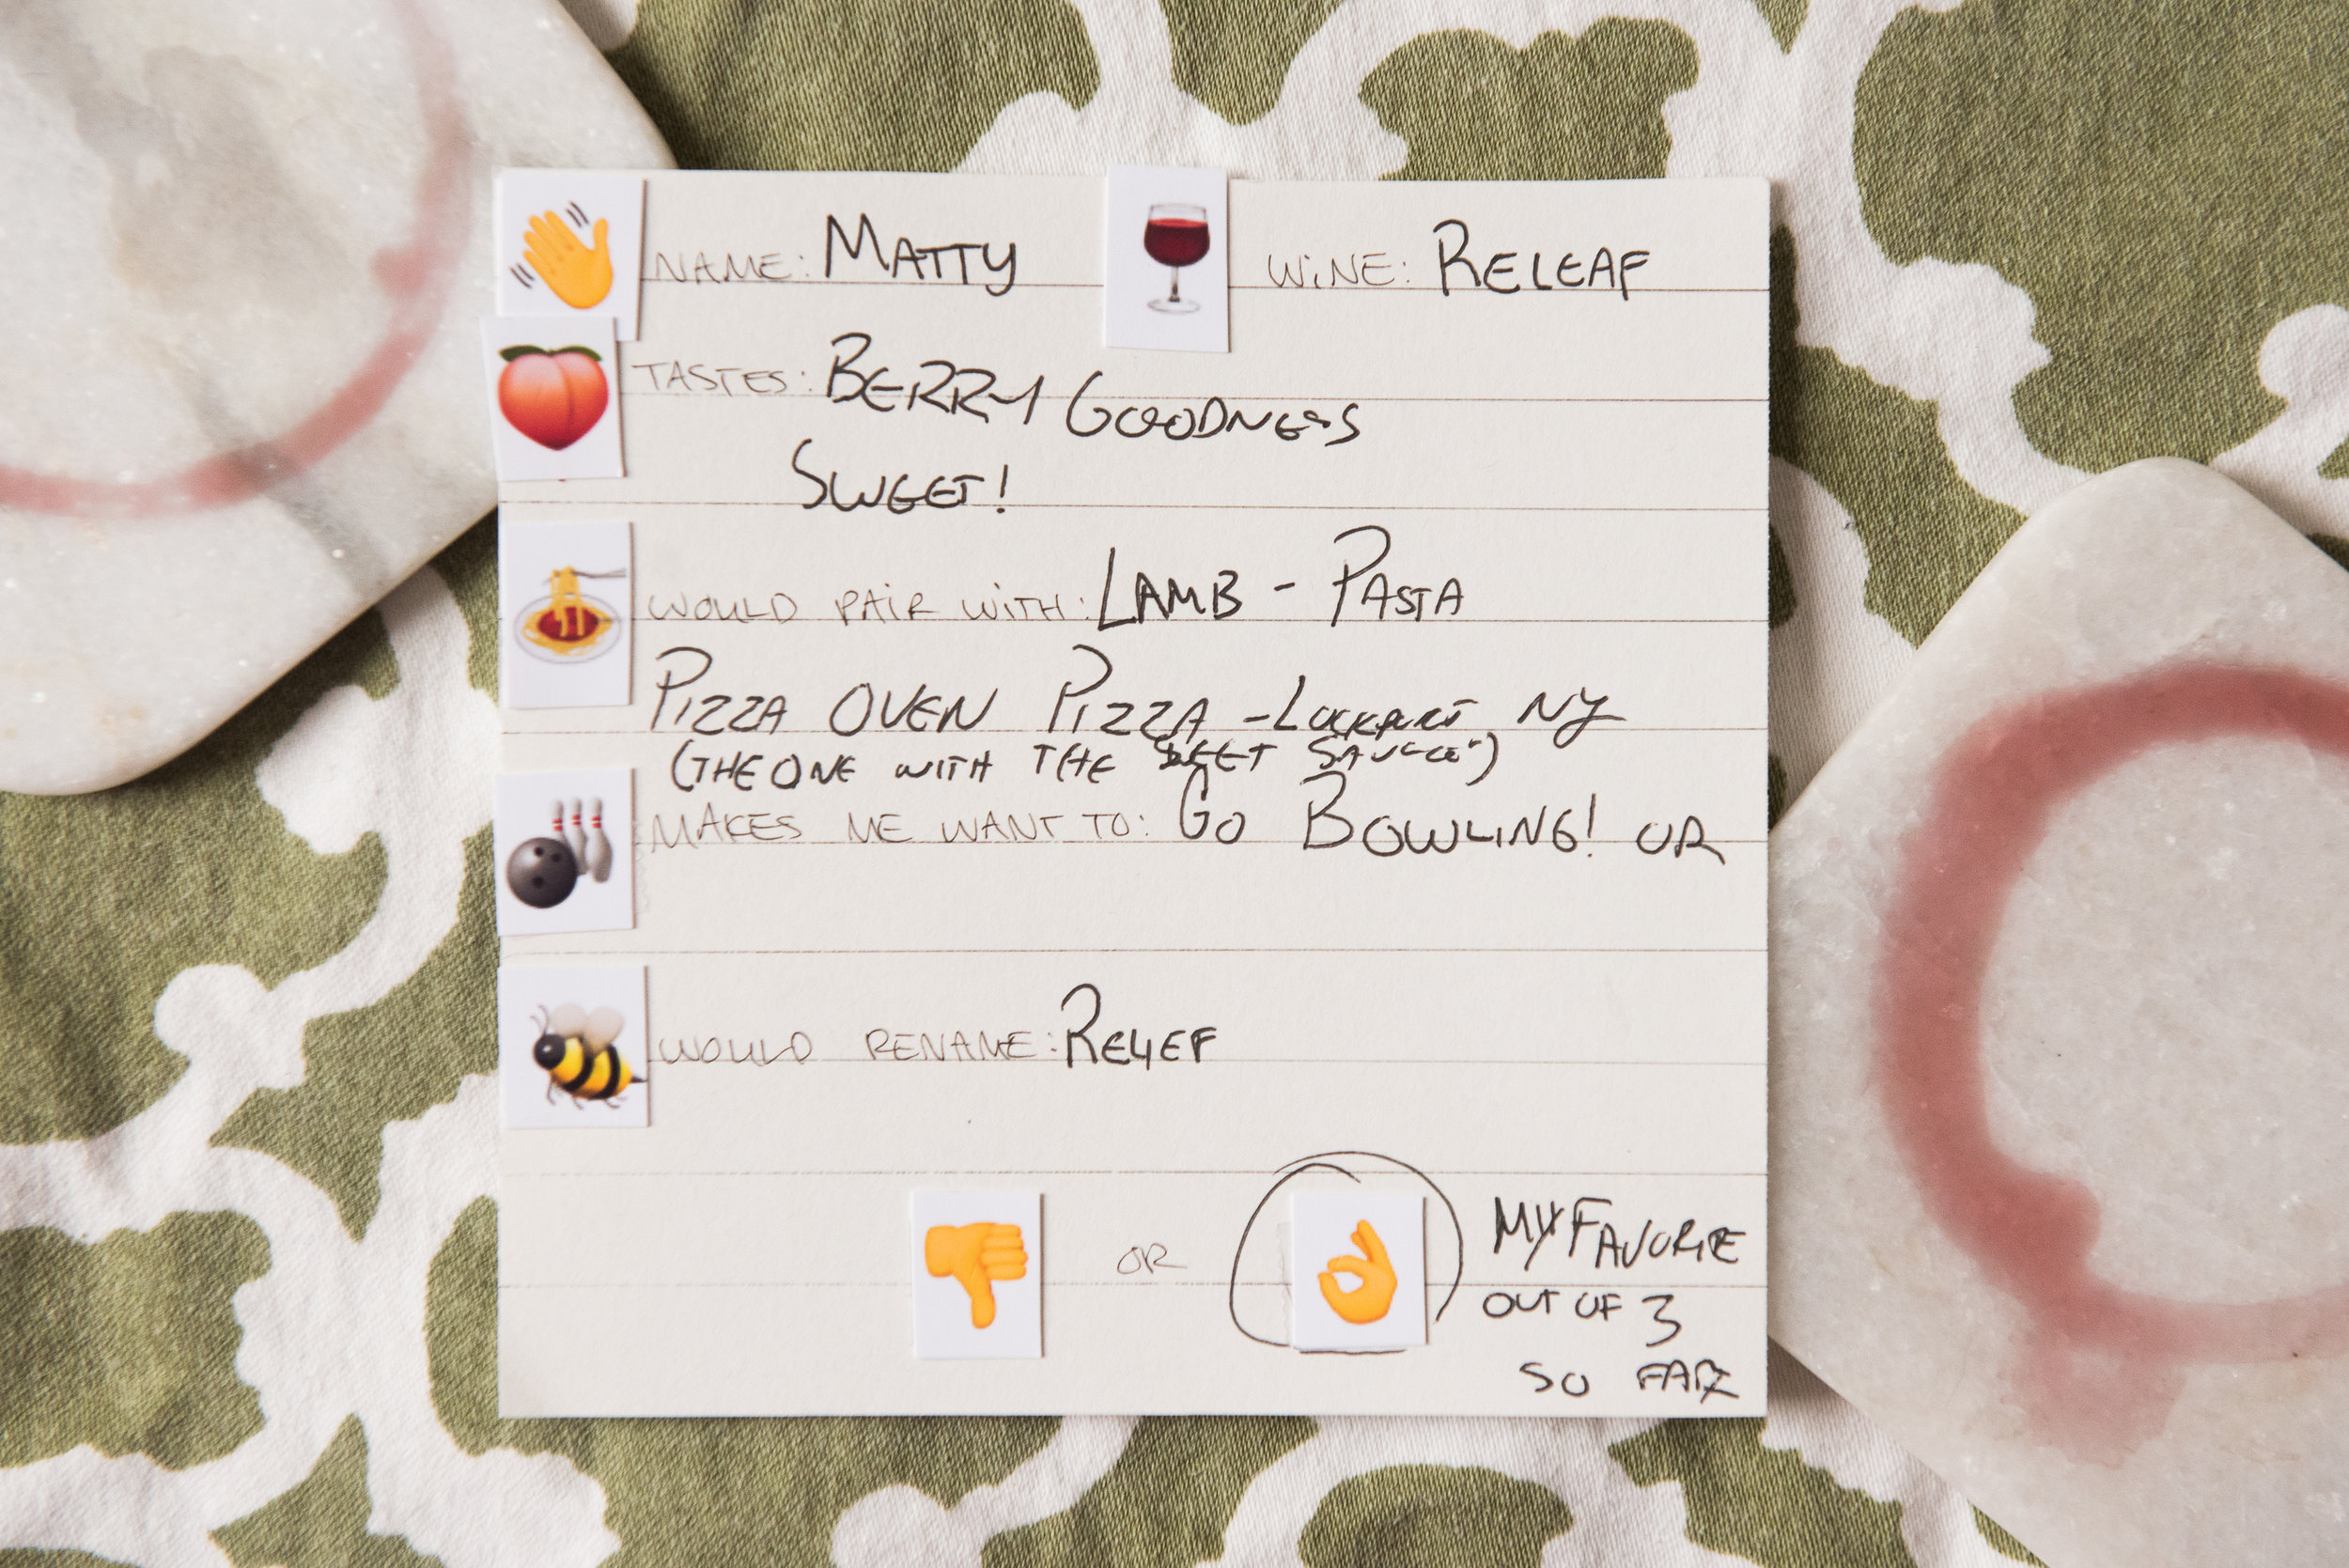 NAME: MATTY WiNE: RELEAF
TASTES: BERRY GOODNESS
SWEET!
WOULD PAiR WiTH: LAMB - PASTA
PIZZA OVEN PIZZA - LOCKPORT NY
(THE ONE WITH THE SAUCE)
MAKES ME WANT TO: GO BOWLING! OR
WOULD RENAME: RELIEF
OR
MY FAVORITE
OUT OF 3
SO FAR